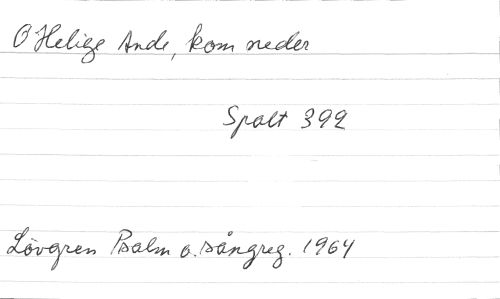 O Helige Ande, kom neder
Spalt 392
Lövgren Psalm o. sångreg. 1964